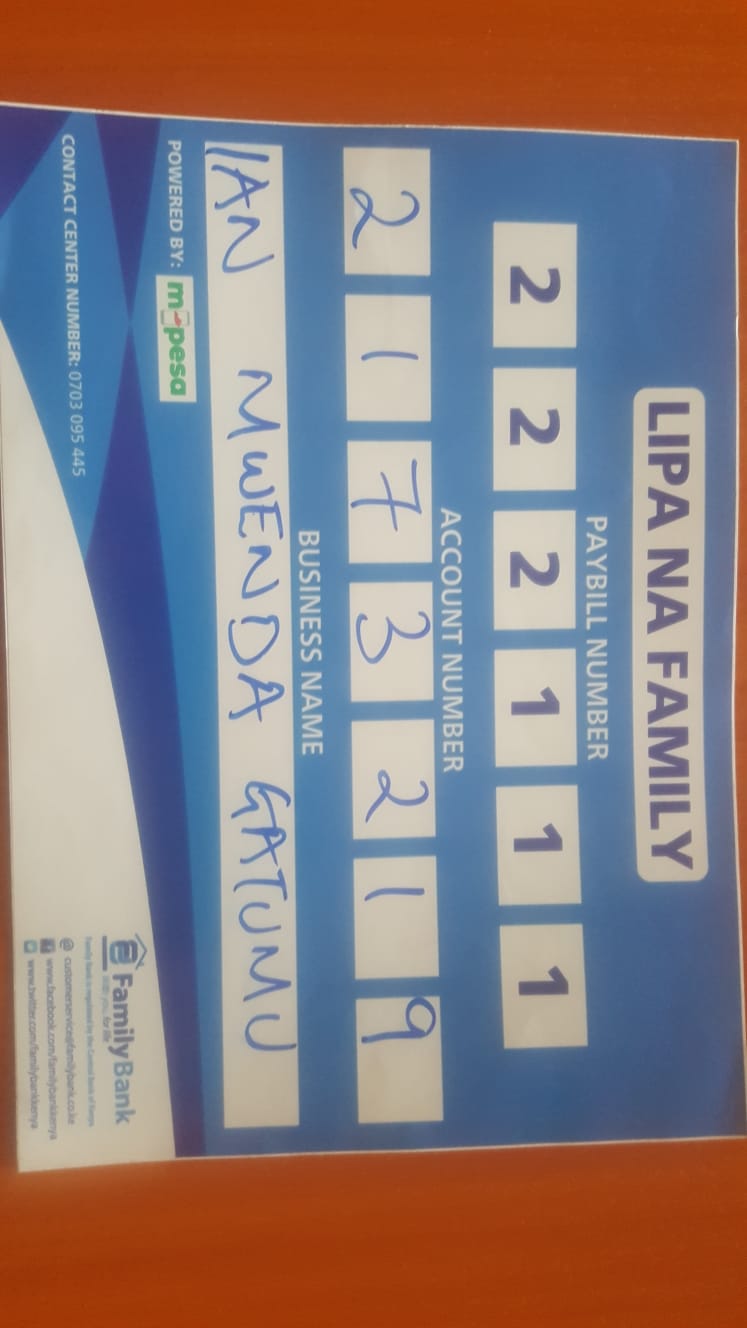 LIPA NA FAMILY
PAYBILL NUMBER
2 2 2 1 1 1
ACCOUNT NUMBER
2 1 7 3 2 1 9
BUSINESS NAME
IAN MWENDA GATUMU
POWERED BY: m-pesa
CONTACT CENTER NUMBER: 0703 095 445
Family Bank
with you, for life
Family Bank is regulated by the Central Bank of Kenya
@ customerservice@familybank.co.ke
www.facebook.com/familybankkenya
www.twitter.com/familybankkenya